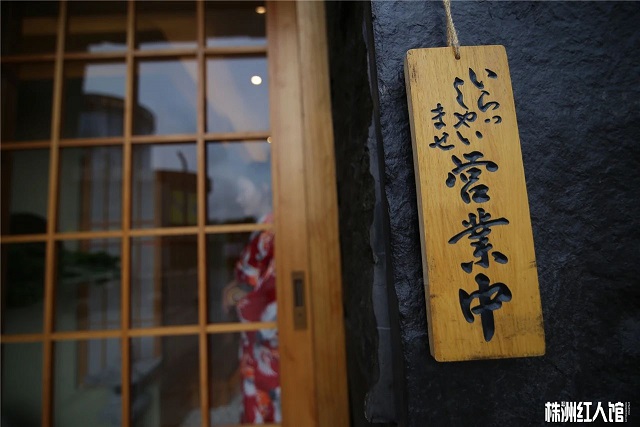 いらっ
しゃい
ませ
営業中
株洲红人馆